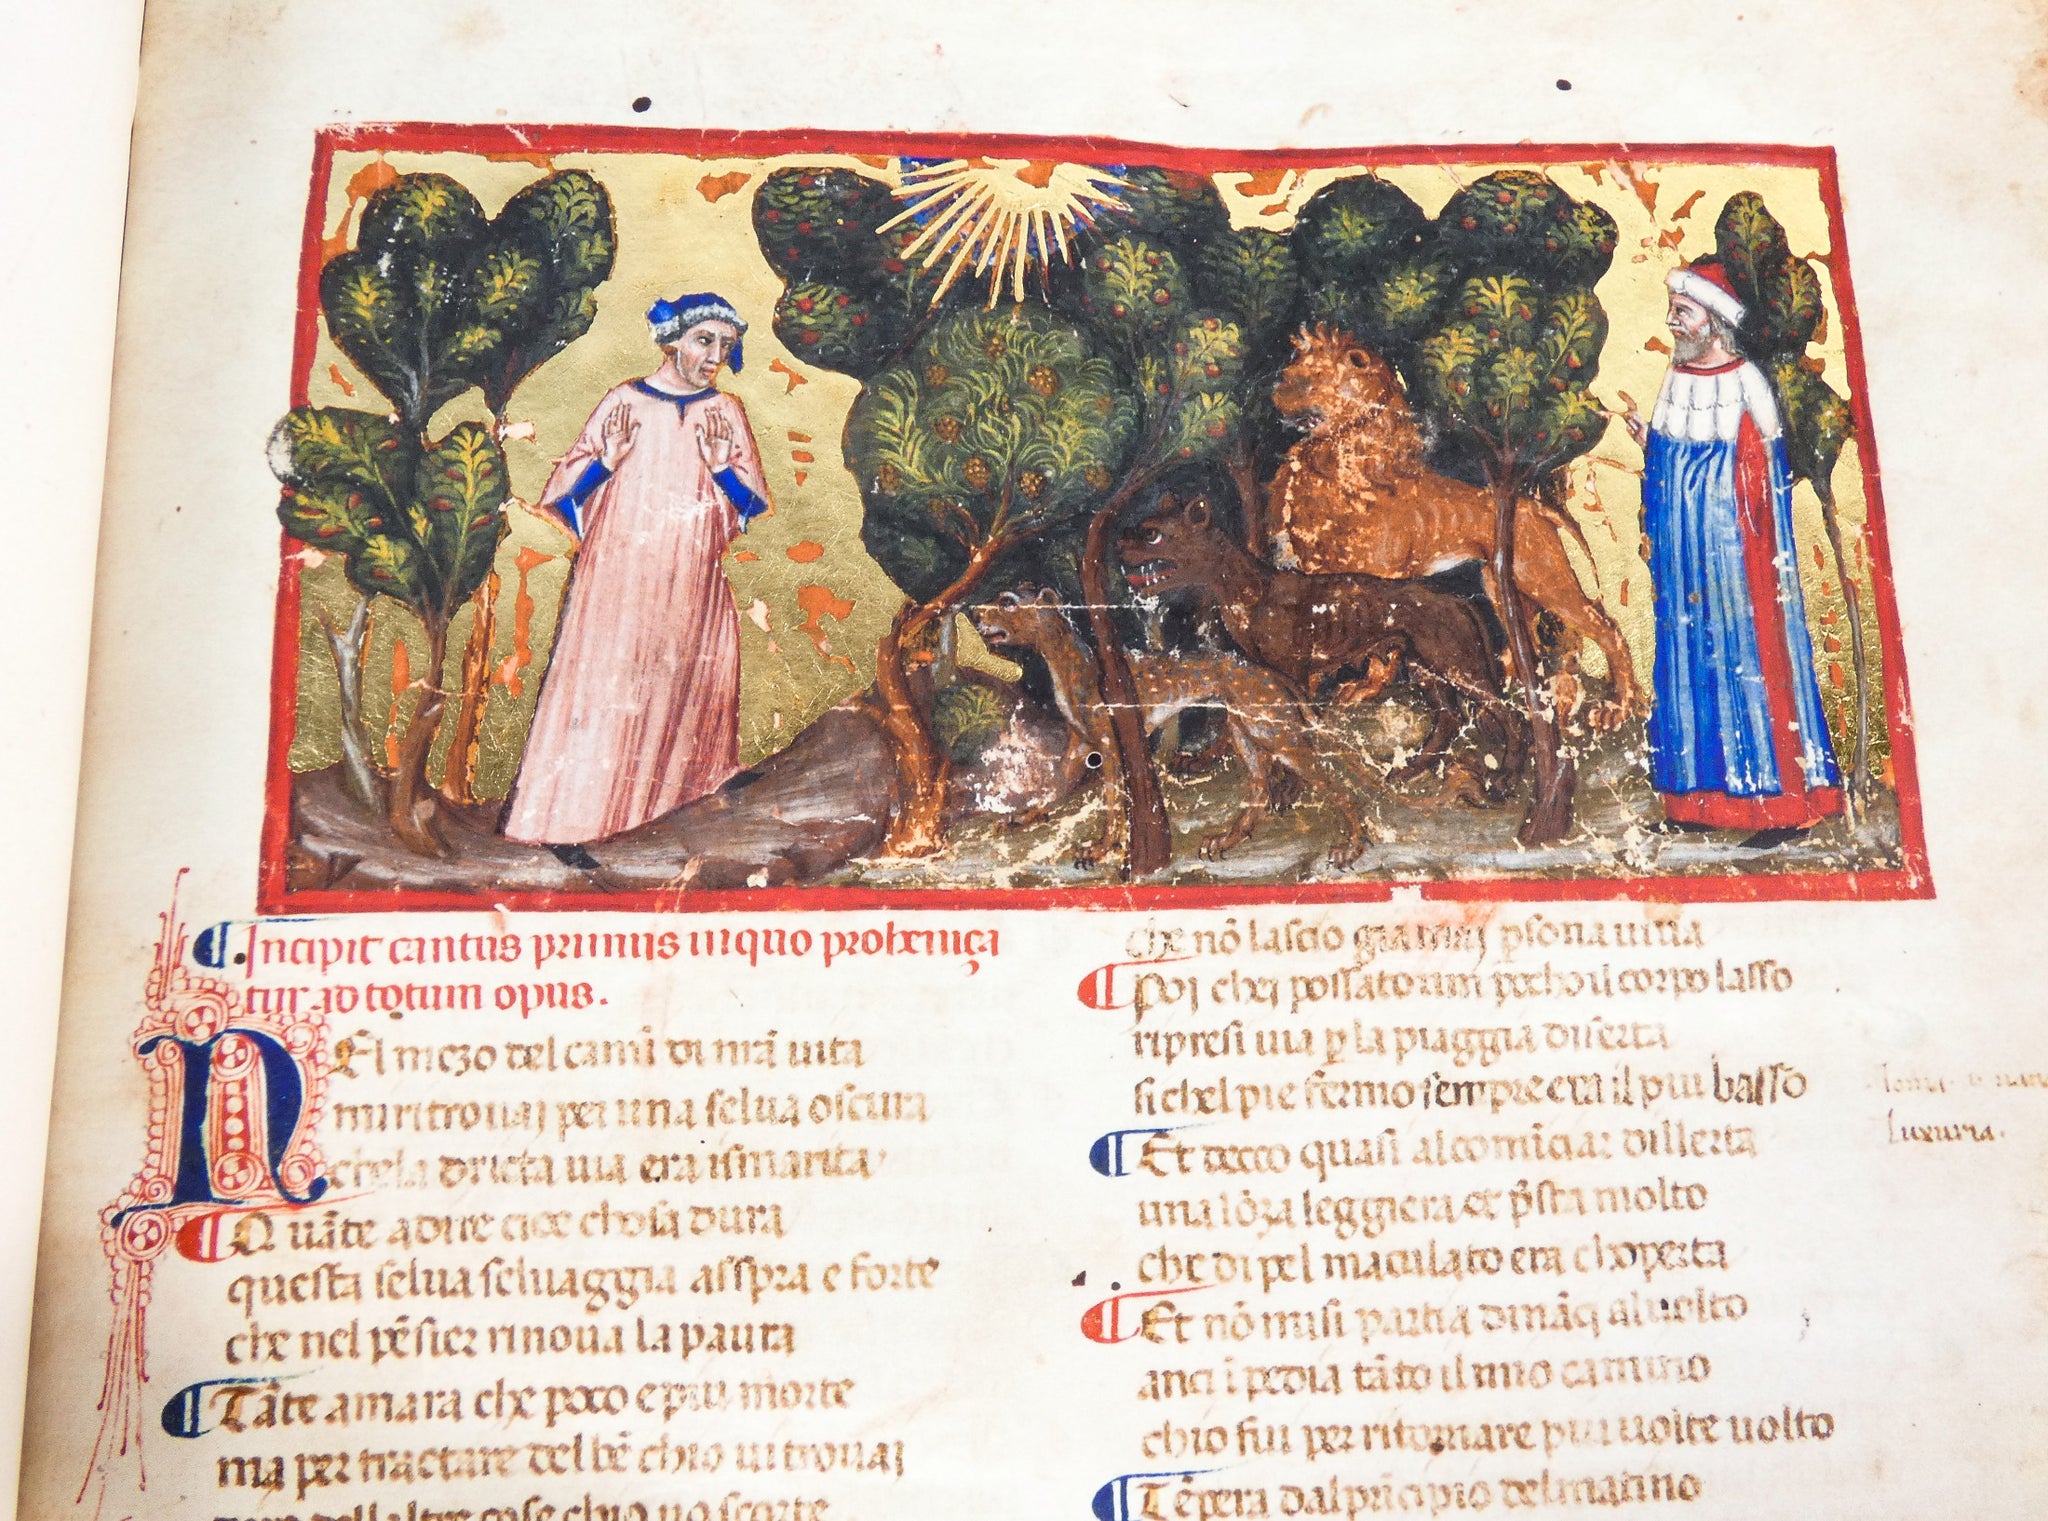 Incipit cantus primus in quo prohemiça
tur ad totum opus.
NEl mezo del camĩ di nr̃a uita
mi ritrouai per una selua oscura
che la dricta uia era ismarita
Quãte a dire cioe chosa dura
questa selua seluaggia asspra e forte
che nel pẽsier rinoua la paura
Tãte amara che poco e piu morte
ma per tractare del bẽ chio ui trouai
dell altre cose chio uo scorte
che nõ lascio gia mai psona uiua
Poi chei possato um pocho il corpo lasso
ripresi uia p la piaggia diserta
si chel pie fermo sempre era il piu basso
Et ecco quasi al comĩciar dillerta
una lõza leggiera et p̃sta molto
che di pel maculato era choperta
Et nõ misi partia dinãçi al uolto
anci ĩpedia tãto il mio camino
chio fui per ritornare piu uolte uolto
Tẽpera dal prĩcipio del matino
luxuria.